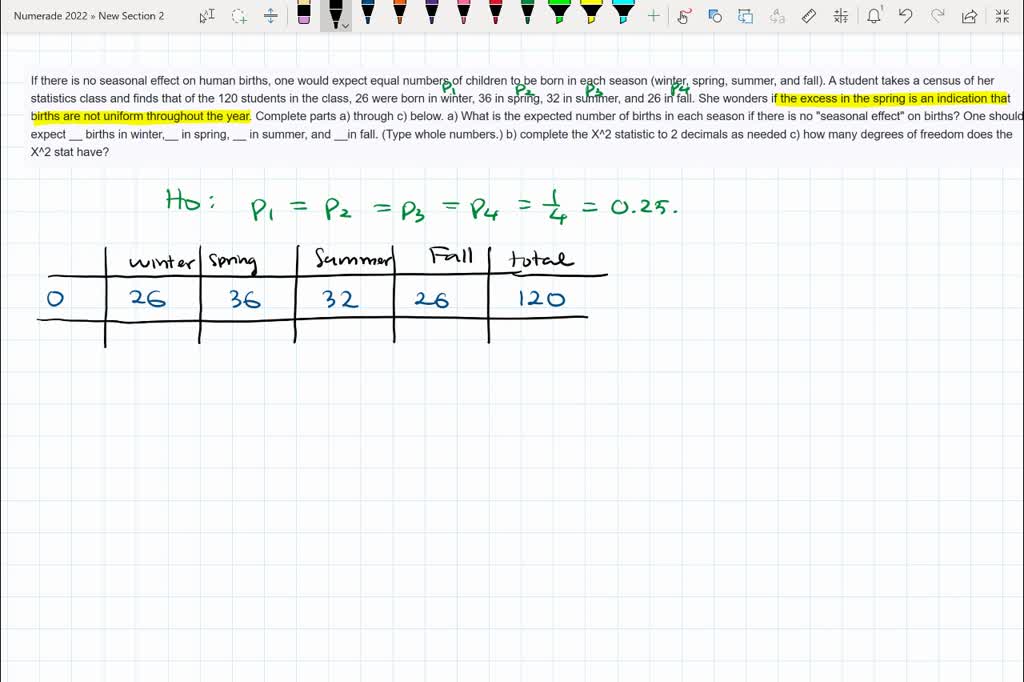 Numerade 2022 » New Section 2
If there is no seasonal effect on human births, one would expect equal numbers of children to be born in each season (winter, spring, summer, and fall). A student takes a census of her
P1 P2 P3 P4
statistics class and finds that of the 120 students in the class, 26 were born in winter, 36 in spring, 32 in summer, and 26 in fall. She wonders if the excess in the spring is an indication that
births are not uniform throughout the year. Complete parts a) through c) below. a) What is the expected number of births in each season if there is no "seasonal effect" on births? One should
expect __ births in winter,__ in spring, __ in summer, and __in fall. (Type whole numbers.) b) complete the X^2 statistic to 2 decimals as needed c) how many degrees of freedom does the
X^2 stat have?
Ho: P1 = P2 = P3 = P4 = 1/4 = 0.25.
winter spring Summer Fall total
O 26 36 32 26 120